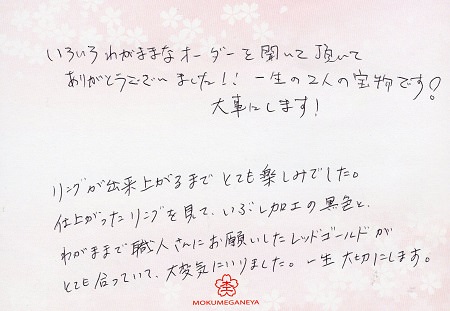 いろいろわがままなオーダーを聞いて頂いて
ありがとうございました!! 一生の2人の宝物です!
大事にします!
リングが出来上がるまでとても楽しみでした。
仕上がったリングを見て、いぶし加工の黒色と、
わがままで職人さんにお願いしたレッドゴールドが
とても合っていて、大変気にいりました。一生大切にします。
MOKUMEGANEYA